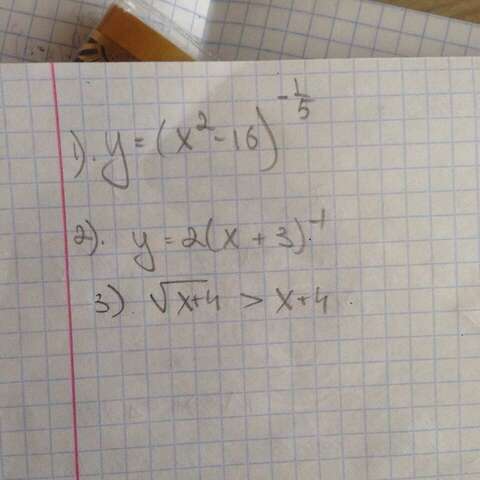 1). y = (x² - 16)^(-1/5)
2). y = 2(x + 3)⁻¹
3) √(x+4) > x+4.